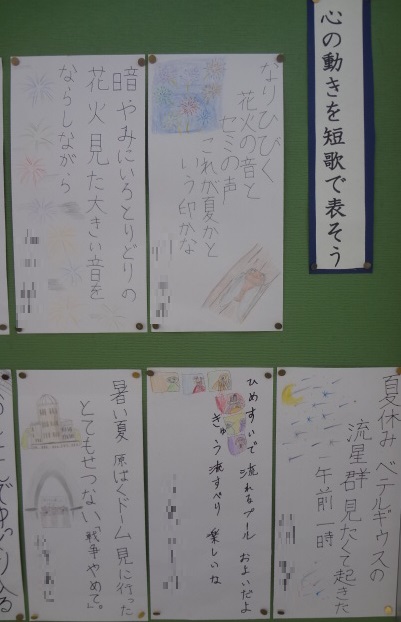 心の動きを短歌で表そう
なりひびく
花火の音と
セミの声
これが夏かと
いう印かな
暗やみにいろとりどりの
花火見た大きい音を
ならしながら
夏休み ベテルギウスの
流星群見たくて起きた
午前一時
ひめすいで 流れるプール およいだよ
きゅう流すべり 楽しいな
暑い夏 原ばくドーム 見に行った
とてもせつない、「戦争やめて」。